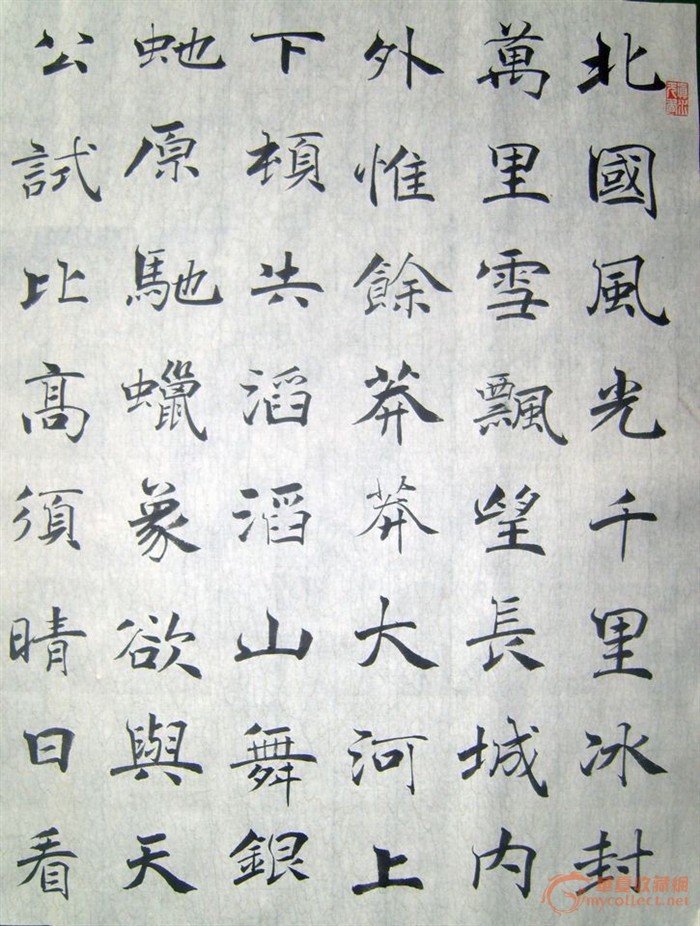 北國風光千里冰封
萬里雪飄望長城内
外惟餘莽莽大河上
下頓失滔滔山舞銀
虵原馳蠟象欲與天
公試比髙須晴日看
華夏收藏網
mycollect.net